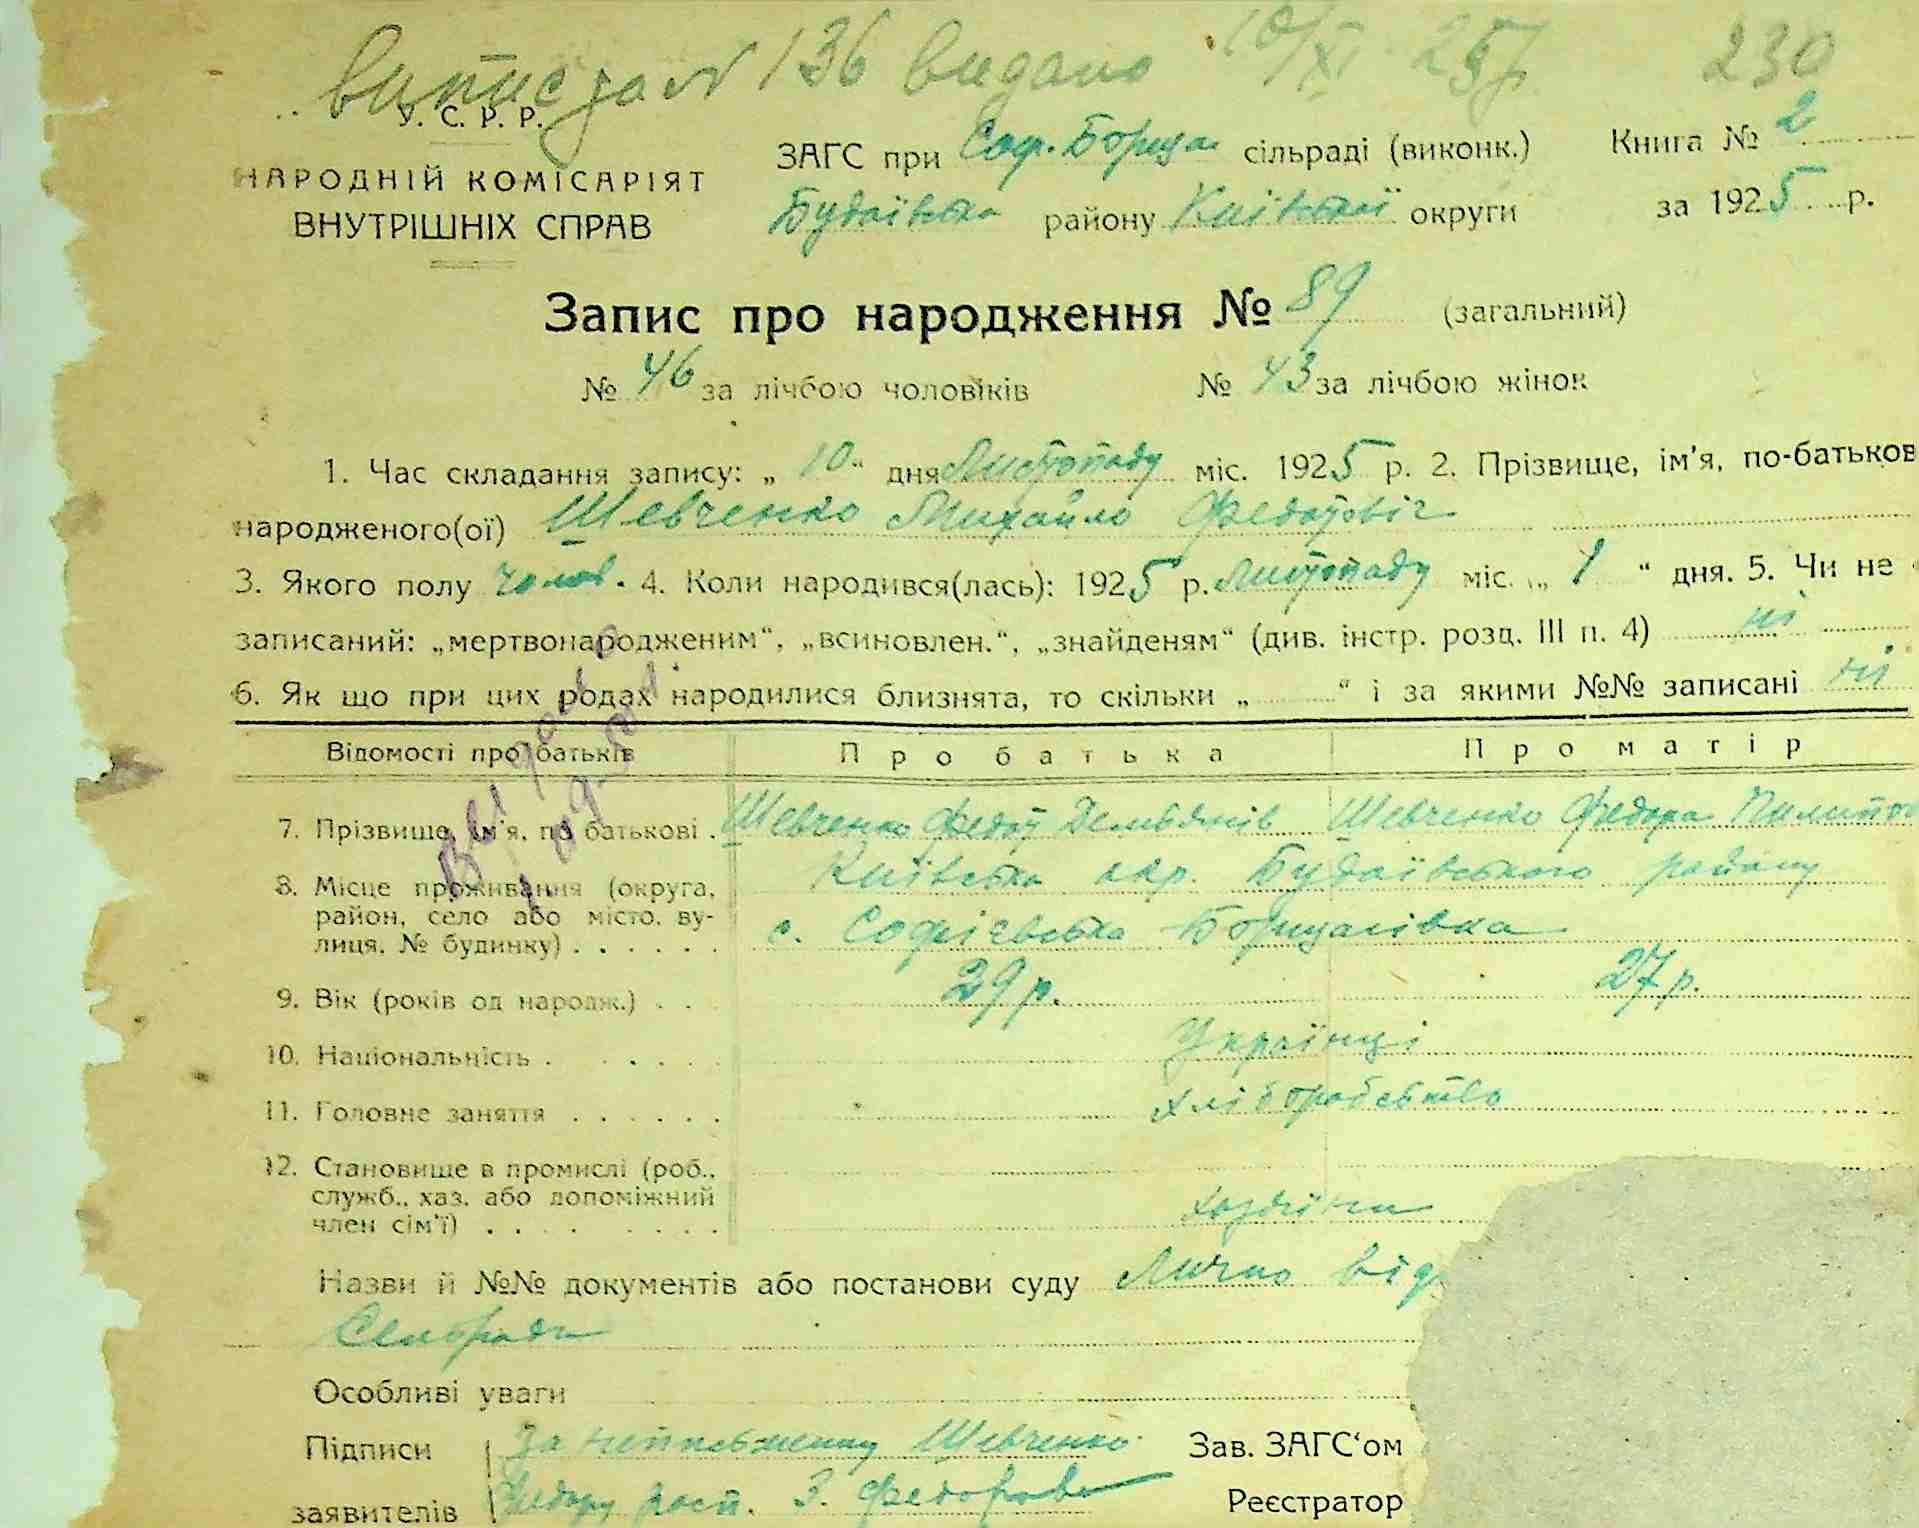 Випис за № 136 видано 10/XI 25р. 230
У. С. Р. Р.
НАРОДНІЙ КОМІСАРІЯТ
ВНУТРІШНІХ СПРАВ
ЗАГС при Соф. Борщаг сільраді (виконк.) Книга № 2
Будаївська району Київської округи за 1925 р.
Запис про народження № 89 (загальний)
№ 46 за лічбою чоловіків № 43 за лічбою жінок
1. Час складання запису: „10“ дня Листопаду міс. 1925 р. 2. Прізвище, ім'я, по-батьков
народженого(ої) Шевченко Михайло Федотовіч
3. Якого полу чолов. 4. Коли народився(лась): 1925 р. Листопаду міс. „ 1 “ дня. 5. Чи не
записаний: „мертвонародженим“, „всиновлен.“, „знайденям“ (див. інстр. розд. III п. 4) ні
6. Як що при цих родах народилися близнята, то скільки „ “ і за якими №№ записані ні
Відомості про батьків Про батька Про матір
7. Прізвище, ім'я, по батькові . Шевченко Федот Демьянів Шевченко Федора Пилипов
8. Місце проживання (округа, район, село або місто, вулиця, № будинку) . . . . . .
Київська окр. Будаївського району
с. Софіевська Борщагівка
9. Вік (років од народж.) . . 29 р. 27 р.
10. Національність . . . . . Українці
11. Головне заняття . . . . . . хліборобство
12. Становище в промислі (роб., служб., хаз. або допоміжний член сім'ї) . . . . . . .
Назви й №№ документів або постанови суду Лично від
Сельради
Особливі уваги
Підписи За неписьменну Шевченко Зав. ЗАГС'ом
заявителів Федору росп. З. Федорова Реєстратор